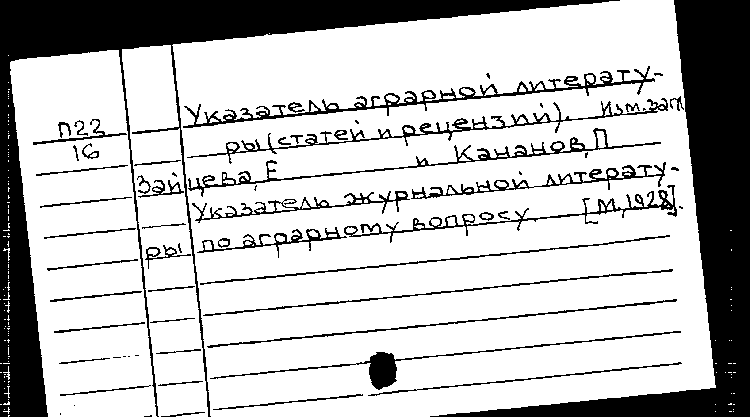 Указатель аграрной литерату-
П22
16
ры (статей и рецензий). Изм. загл
Зайцева, Е и Кананов, П
Указатель журнальной литерату-
ры по аграрному вопросу. [М., 1928].